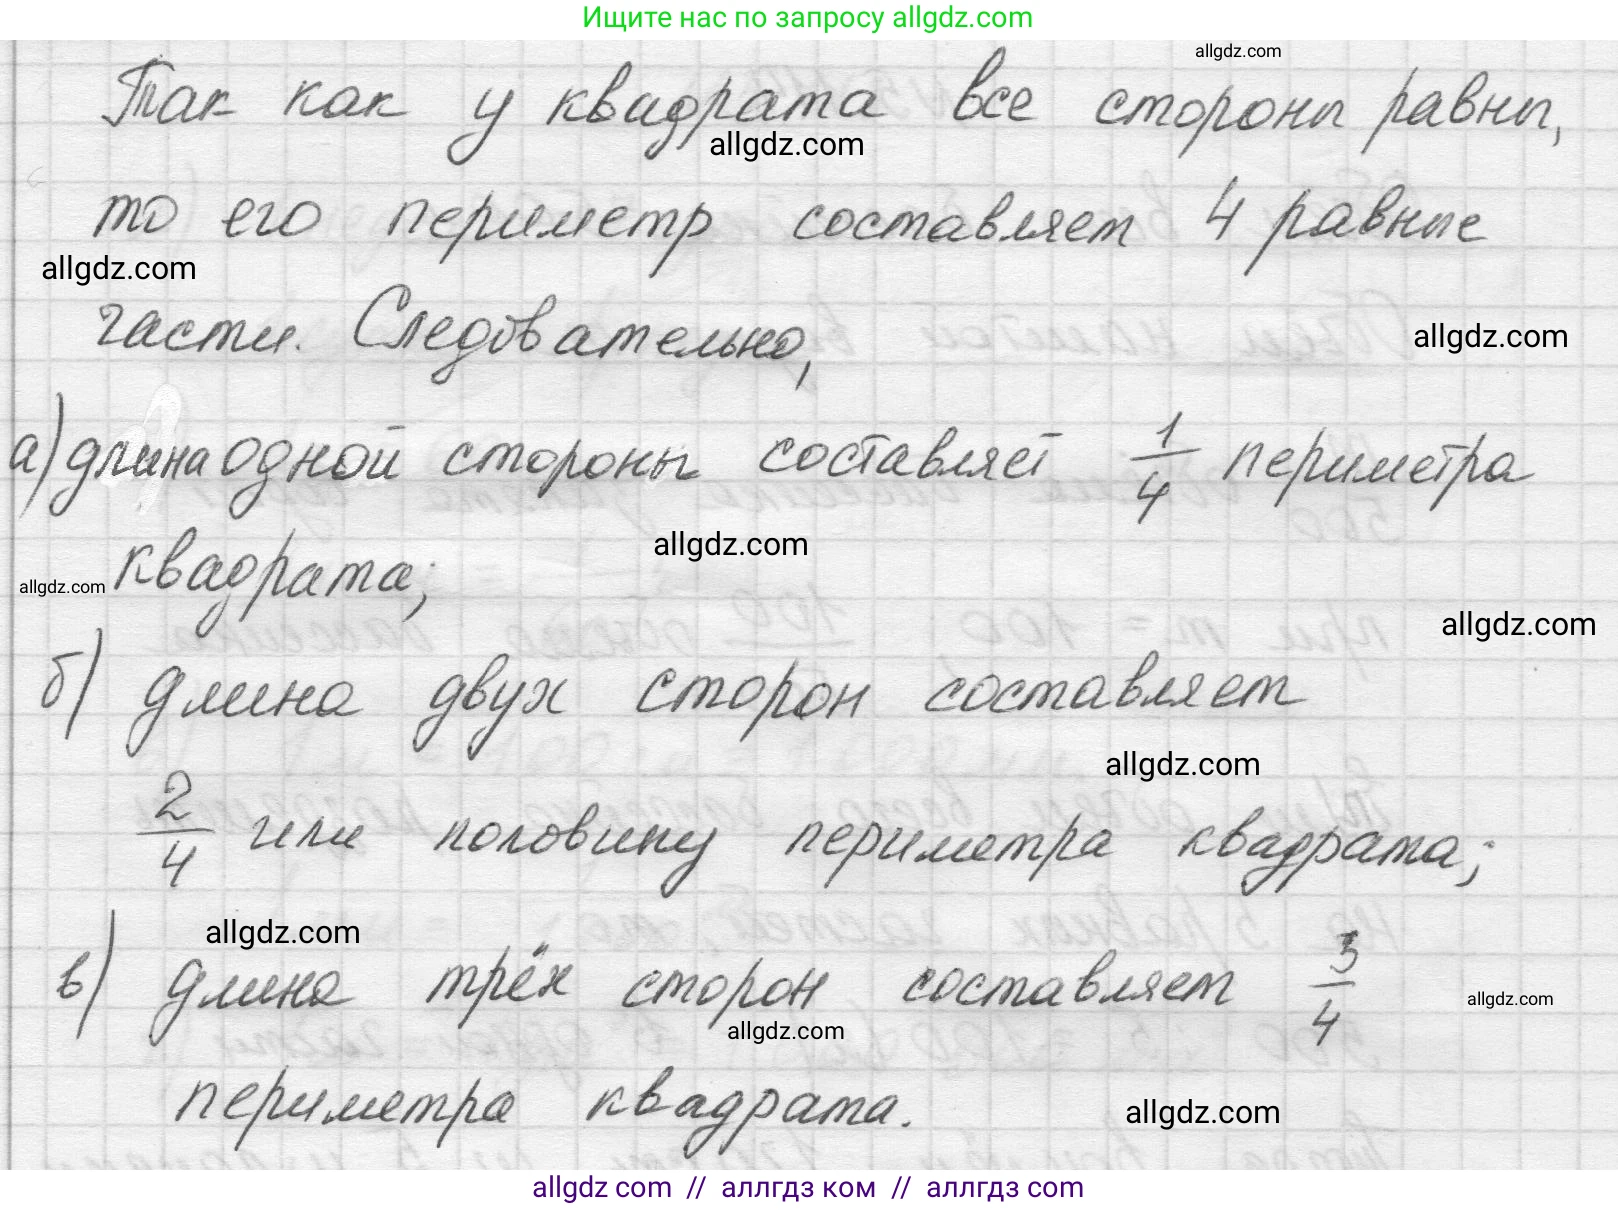 Ищите нас по запросу allgdz.com
allgdz.com
Так как у квадрата все стороны равны,
allgdz.com
то его периметр составляет 4 равные
allgdz.com
части. Следовательно,
allgdz.com
а) длина одной стороны составляет 1/4 периметра
allgdz.com
allgdz.com квадрата;
allgdz.com
б) длина двух сторон составляет
allgdz.com
2/4 или половину периметра квадрата;
allgdz.com
в) длина трёх сторон составляет 3/4
allgdz.com
allgdz.com
периметра квадрата.
allgdz.com
allgdz com // аллгдз ком // аллгдз com